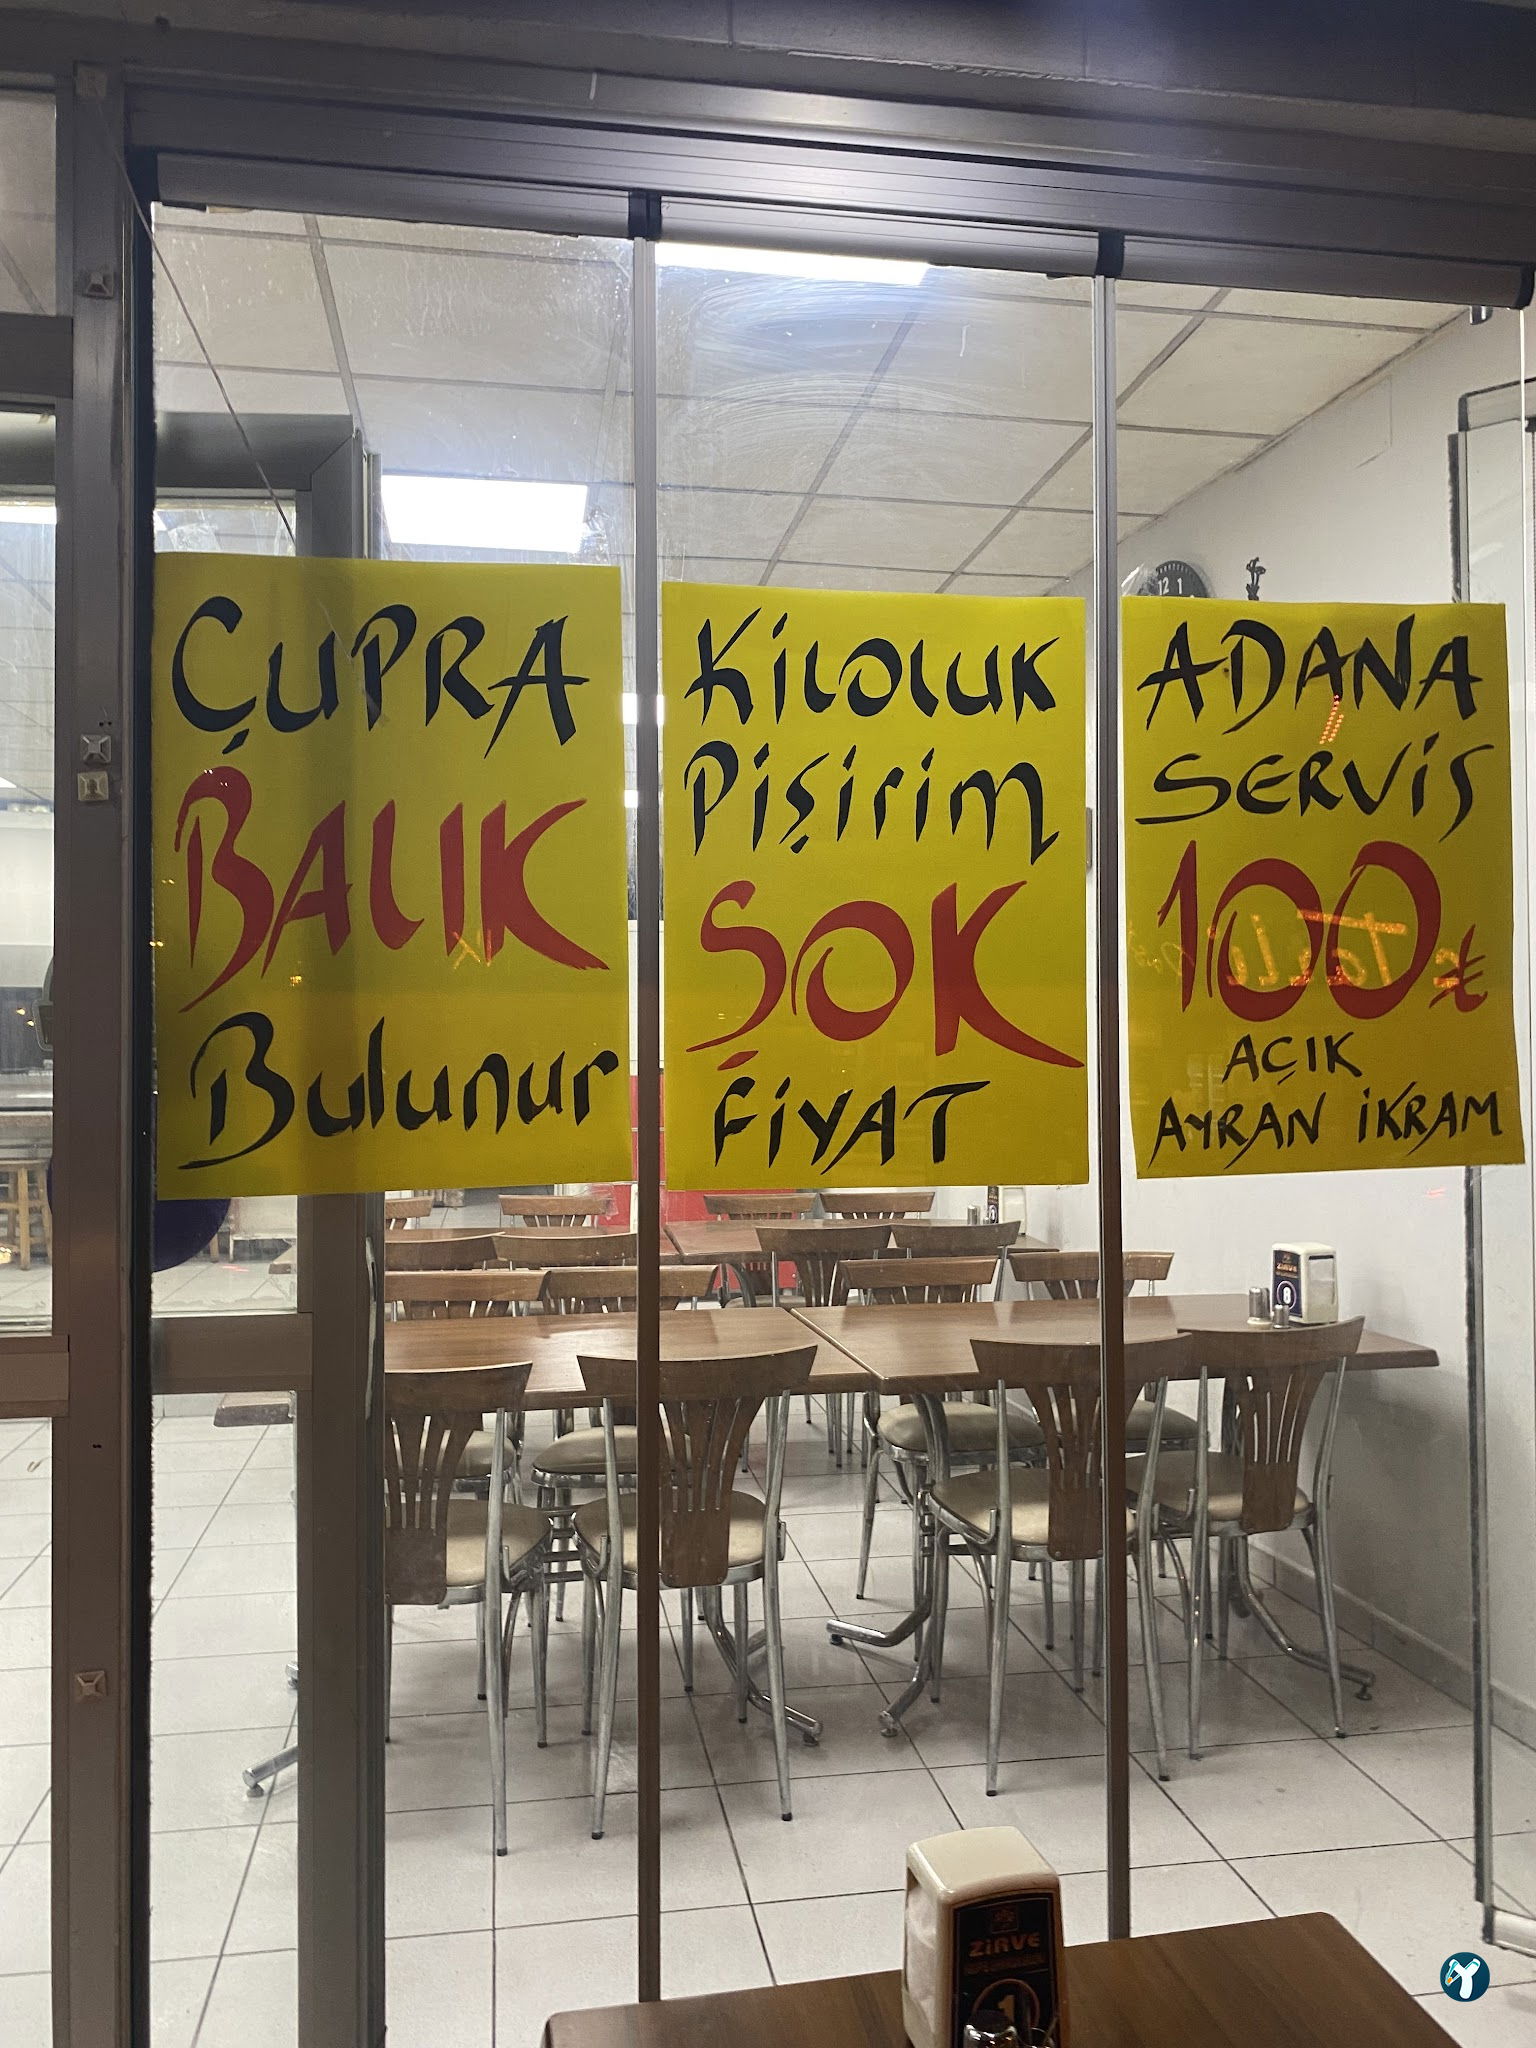 ÇUPRA
BALIK
Bulunur
KiLOLUK
Pişirim
ŞOK
FİYAT
ADANA
SERVİS
100₺
AÇIK
AYRAN İKRAM
12 1
ZİRVE
8
ZİRVE
1